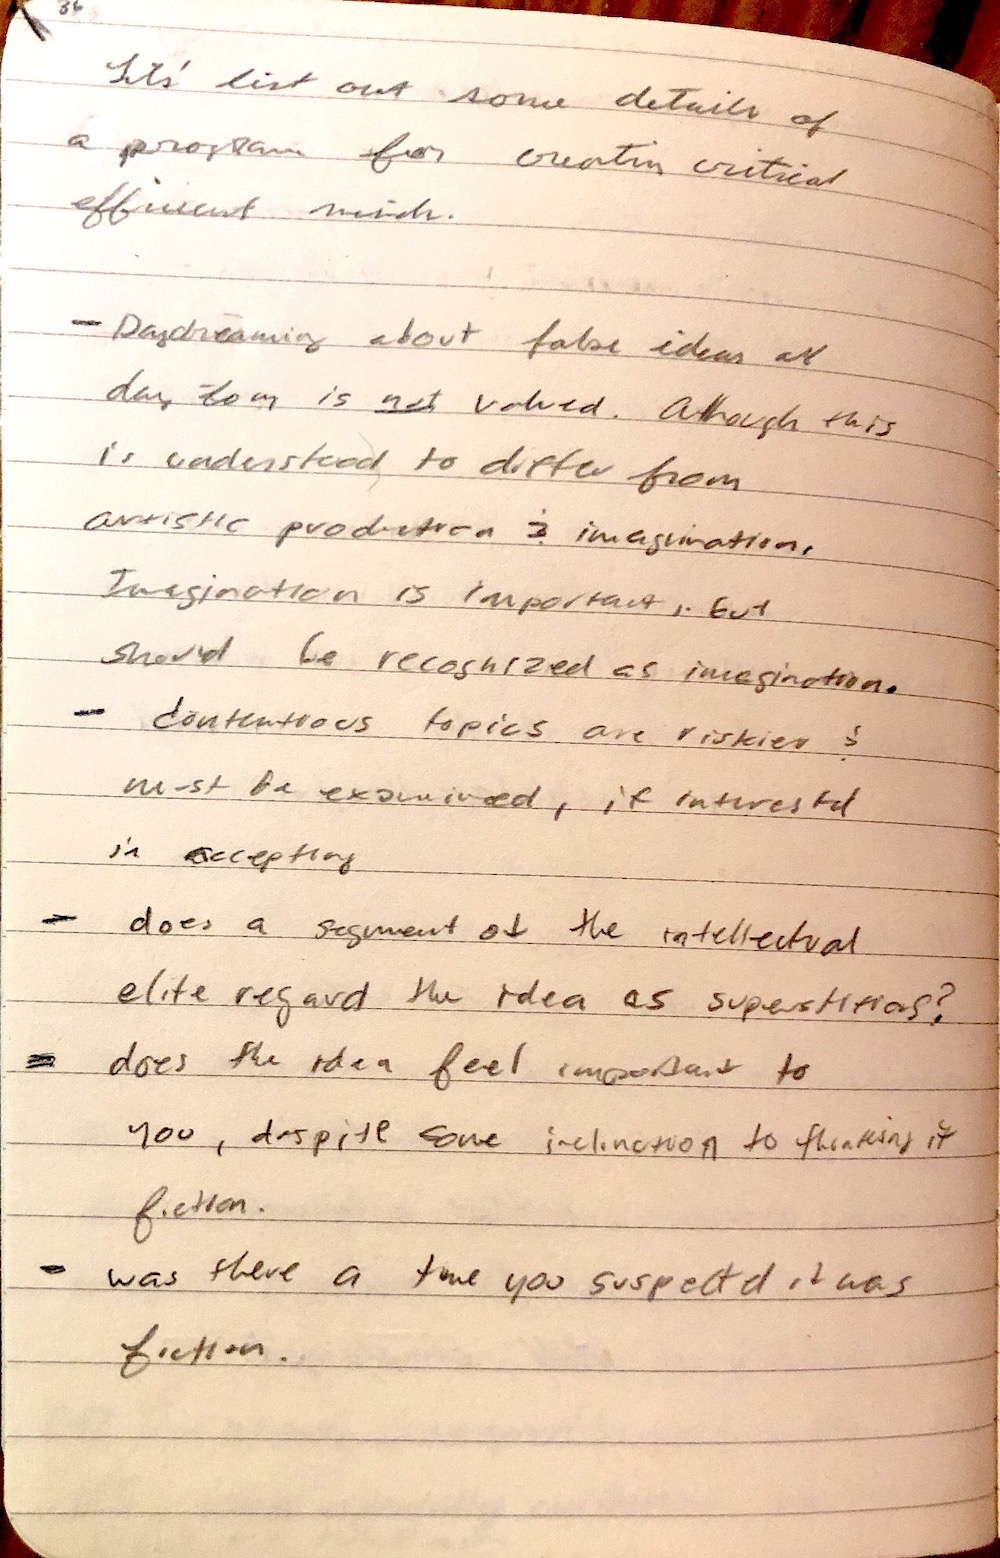 36
Lets' list out some details of
a program for creatin critical
efficient minds.
- Daydreaming about false ideas all
day long is not valued. Although this
is understood to differ from
artistic production & imagination.
Imagination is important, but
should be recognized as imagination.
- contentious topics are riskier &
must be examined, if interested
in accepting
- does a segment of the intellectual
elite regard the idea as superstitious?
- does the idea feel important to
you, despite some inclination to thinking it
fiction.
- was there a time you suspectd it was
fiction.